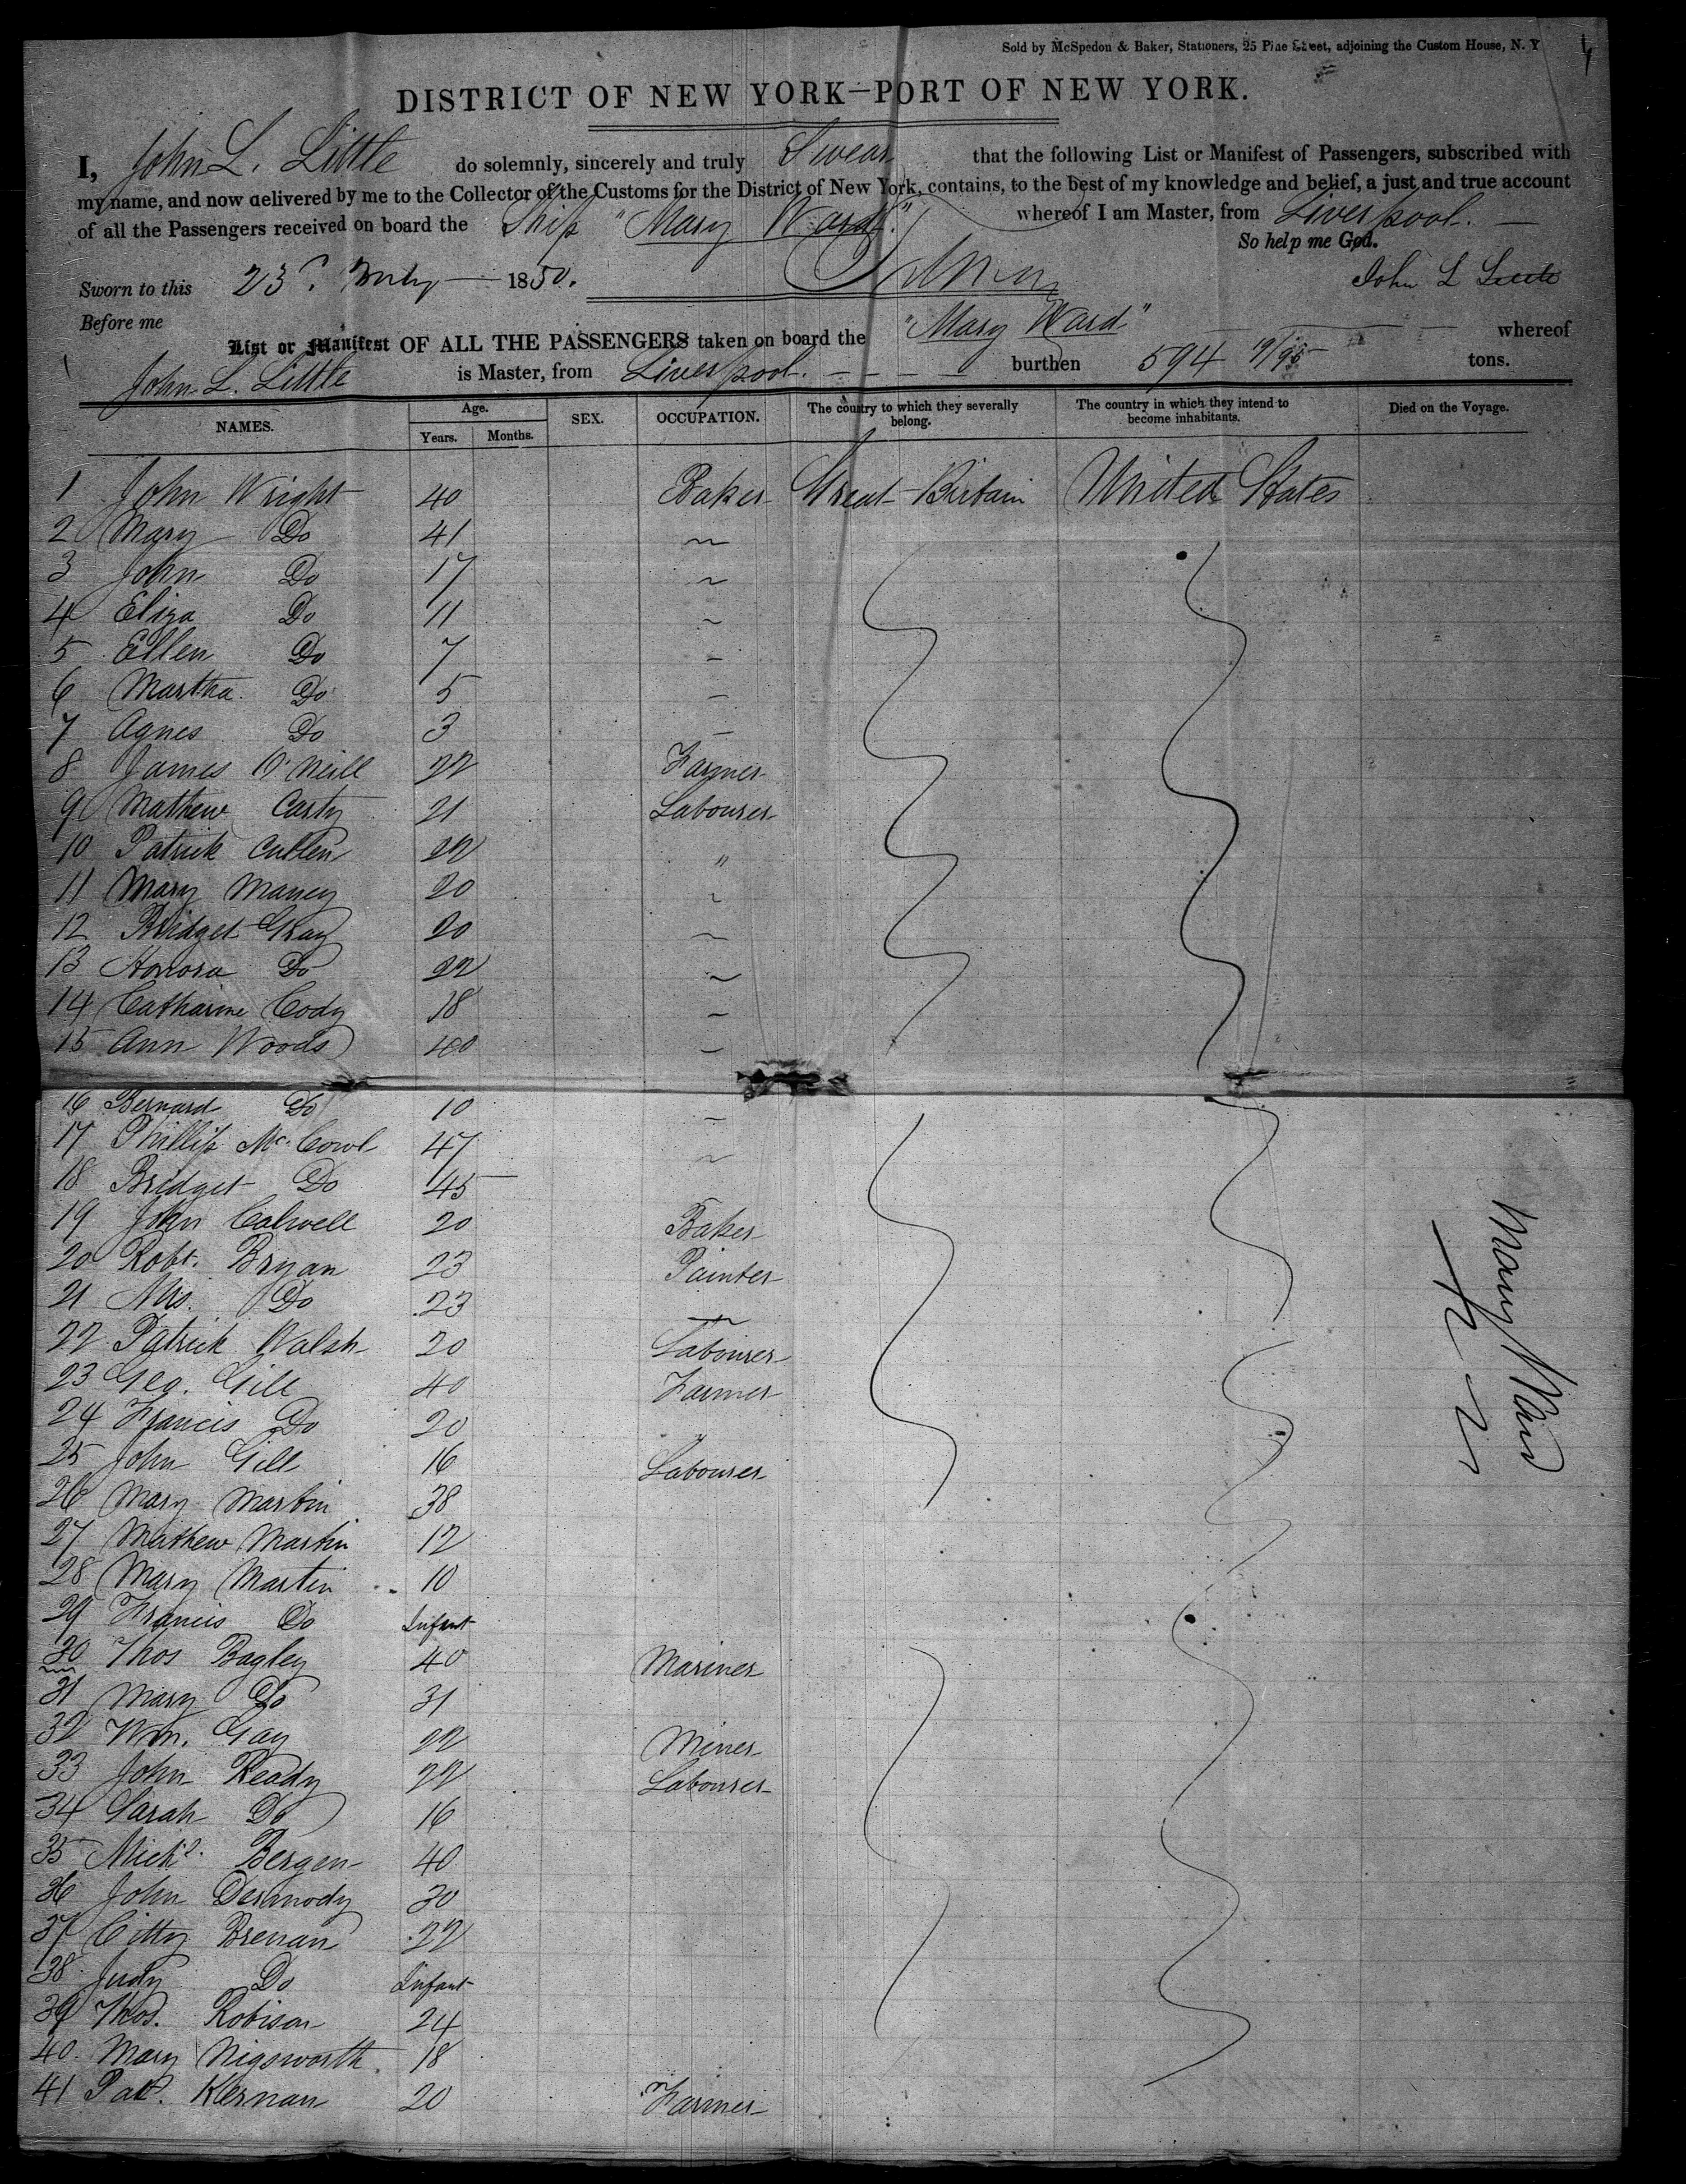 Sold by McSpedon & Baker, Stationers, 25 Pine Street, adjoining the Custom House, N. Y
DISTRICT OF NEW YORK—PORT OF NEW YORK.
I, John L. Little do solemnly, sincerely and truly Swear that the following List or Manifest of Passengers, subscribed with
my name, and now delivered by me to the Collector of the Customs for the District of New York, contains, to the best of my knowledge and belief, a just and true account
of all the Passengers received on board the Ship "Mary Ward" whereof I am Master, from Liverpool.
So help me God.
Sworn to this 23d 1850. John L Little
Before me
List or Manifest OF ALL THE PASSENGERS taken on board the "Mary Ward" whereof
John L. Little is Master, from Liverpool. burthen 594 19/95 tons.
NAMES. Age. Years. Months. SEX. OCCUPATION. The country to which they severally belong. The country in which they intend to become inhabitants. Died on the Voyage.
1 John Wright 40 Baker Great Birtain United States
2 Mary Do 41
3 John Do 17
4 Eliza Do 11
5 Ellen Do 7
6 Martha Do 5
7 Agnes Do 3
8 James O'Neill 22 Farmer
9 Mathew Carty 21 Labourer
10 Patrick Cullen 22 "
11 Mary Maney 20
12 Bridget Gray 20
13 Honora Do 22
14 Catharine Cody 18
15 Ann Woods 40
16 Bernard Do 10
17 Phillip Mc Cowl 47
18 Bridget Do 45
19 John Calwell 20 Baker
20 Robt. Bryan 23 Painter
21 Mrs. Do 23
22 Patrick Walsh 20 Labourer
23 Geo. Gill 40 Farmer
24 Francis Do 20 "
25 John Gill 16 Labourer
26 Mary Martin 38
27 Mathew Martin 12
28 Mary Martin 10
29 Francis Do Infant
30 Thos Bagley 40 Mariner
31 Mary Do 31
32 Wm. Gay 22 Miner
33 John Ready 22 Labourer
34 Sarah Do 16
35 Michl. Bergen 40
36 John Dermody 30
37 Citty Brenan 22
38 Judy Do Infant
39 Thos. Robison 24
40 Mary Nigsworth 18
41 Pat. Kernan 20 Farmer
Mary Ward